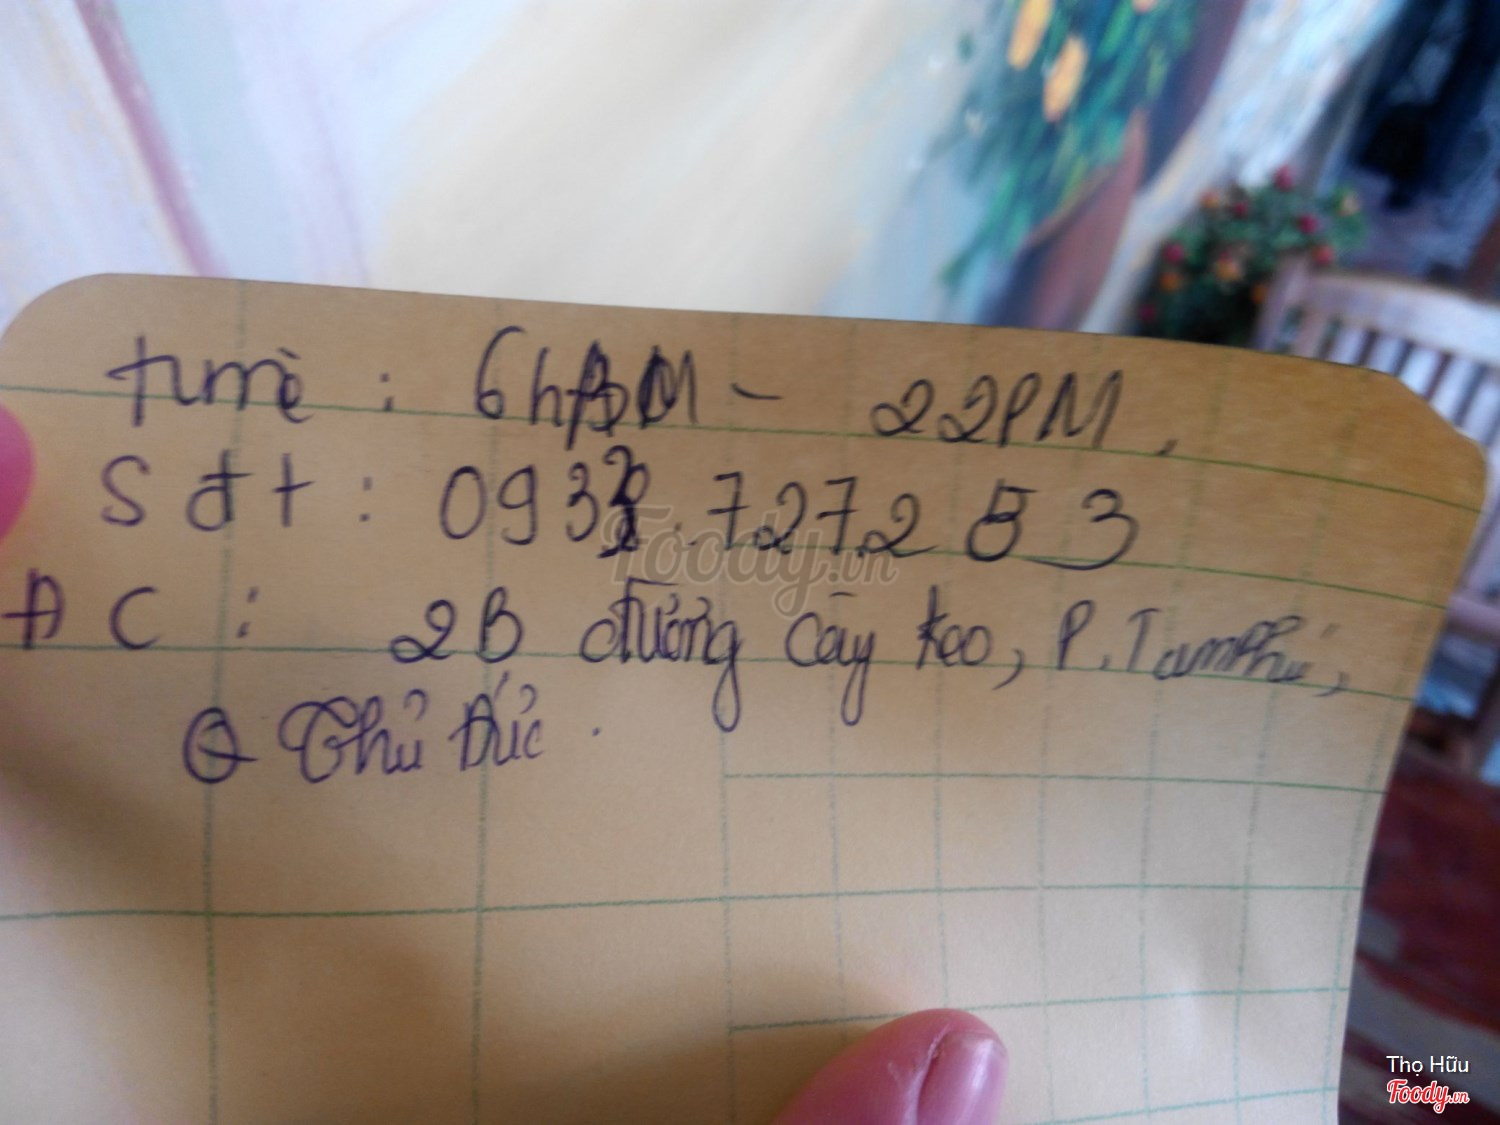 time: 6h AM - 22PM,
Sđt: 093 .727.2 53
ĐC: 2B đường Cây Keo, P. Tam Phú,
Q Thủ Đức.
Foody.vn
Thọ Hữu
Foody.vn